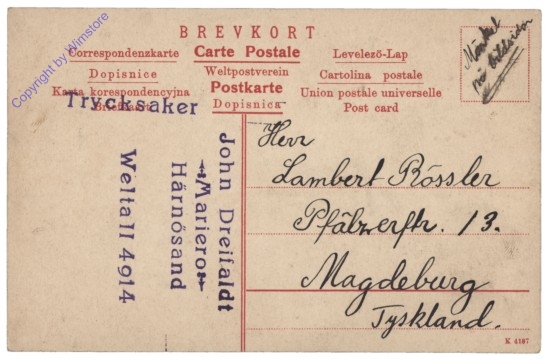 BREVKORT
Correspondenzkarte Carte Postale Levelezö-Lap
Dopisnice Weltpostverein Cartolina postale
Karta korespondencyjna Postkarte Union postale universelle
Briefkaart Dopisnica Post card
Copyright by Wimstore
Märket
på bildsidan
Trycksaker
John Dreifaldt
Mariero
Härnösand
Weltall 4914
Herr
Lambert Rössler
Pfälzerstr. 13.
Magdeburg
Tyskland.
K 4187